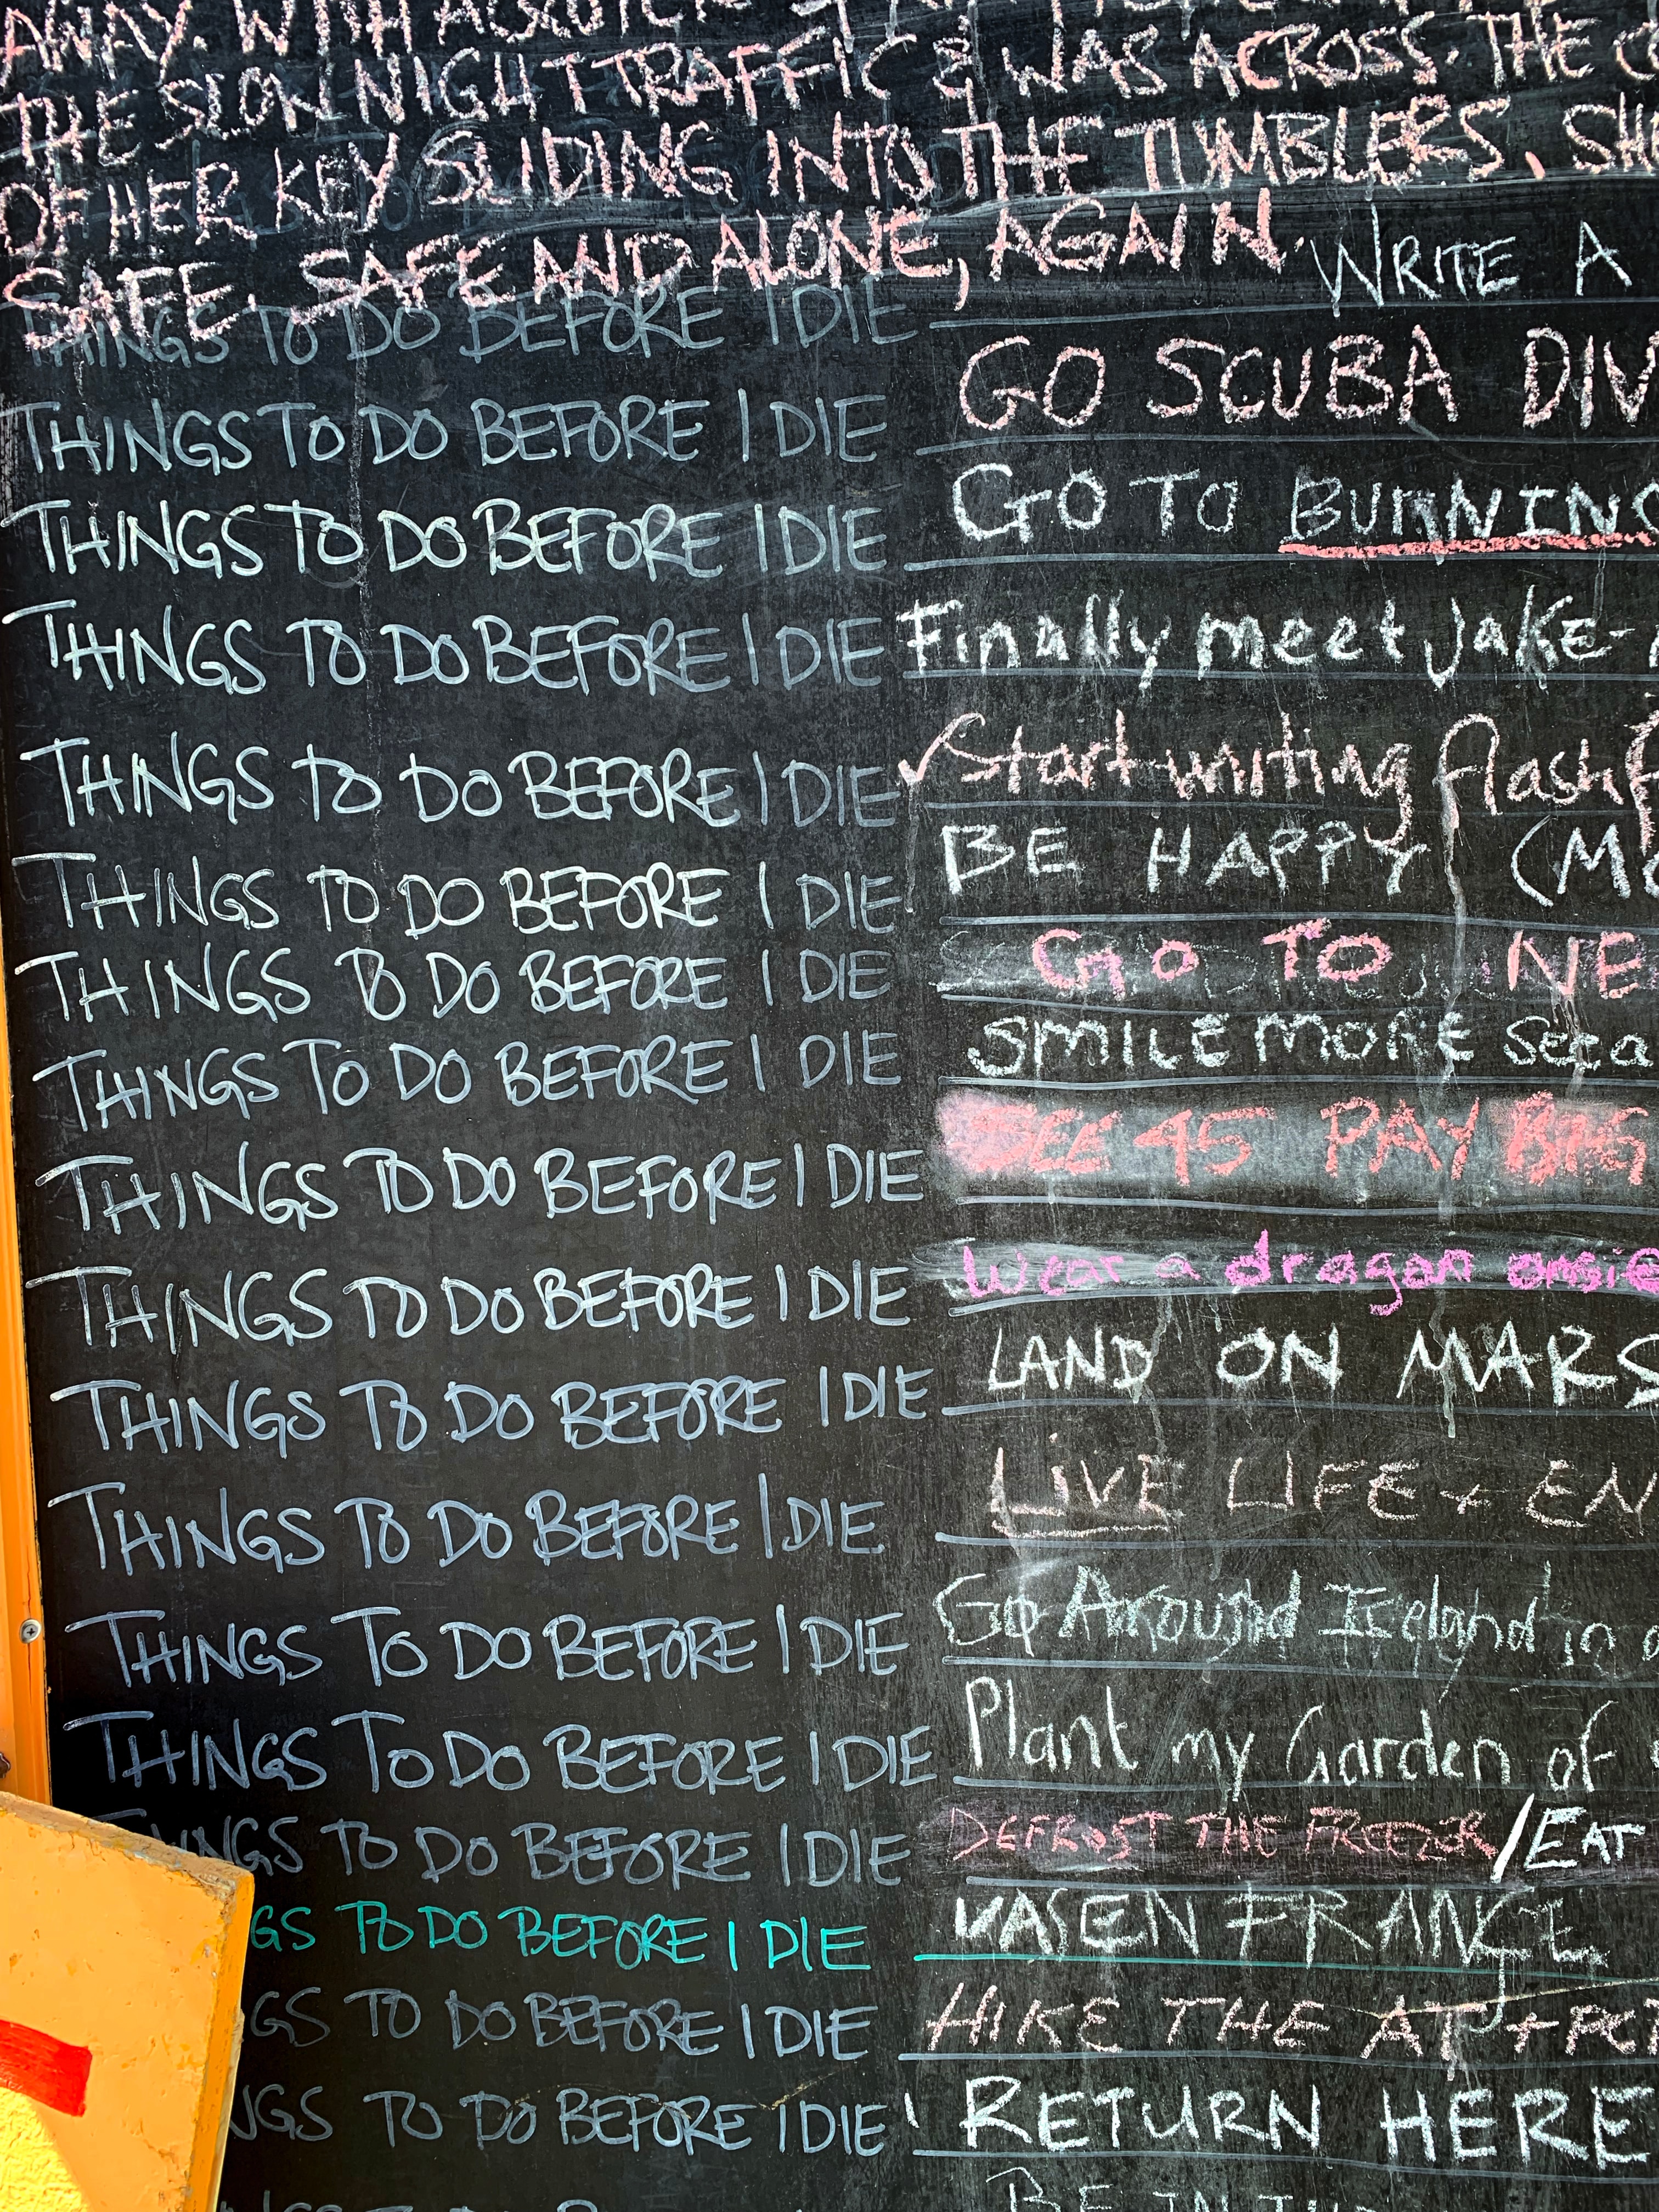 AWAY. WITH A
THE SLOW NIGHT TRAFFIC & WAS ACROSS. THE
OF HER KEY SLIDING INTO THE TUMBLERS. SH
SAFE. SAFE AND ALONE, AGAIN.
THINGS TO DO BEFORE I DIE WRITE A
THINGS TO DO BEFORE I DIE GO SCUBA DIV
THINGS TO DO BEFORE I DIE GO TO BURNING
THINGS TO DO BEFORE I DIE Finally meet Jake-
THINGS TO DO BEFORE I DIE Start writing flash f
THINGS TO DO BEFORE I DIE BE HAPPY (MO
THINGS TO DO BEFORE I DIE GO TO NE
THINGS TO DO BEFORE I DIE SMILE MORE
THINGS TO DO BEFORE I DIE SEE 45 PAY BIG
THINGS TO DO BEFORE I DIE Wear a dragon onsie
THINGS TO DO BEFORE I DIE LAND ON MARS
THINGS TO DO BEFORE I DIE LIVE LIFE + EN
THINGS TO DO BEFORE I DIE Go Around Iceland in a
THINGS TO DO BEFORE I DIE Plant my Garden of
INGS TO DO BEFORE I DIE DEFROST THE FREEZER /EAT
GS TO DO BEFORE I DIE FRANCE
GS TO DO BEFORE I DIE HIKE THE AT + PCT
NGS TO DO BEFORE I DIE RETURN HERE
BE IN THE